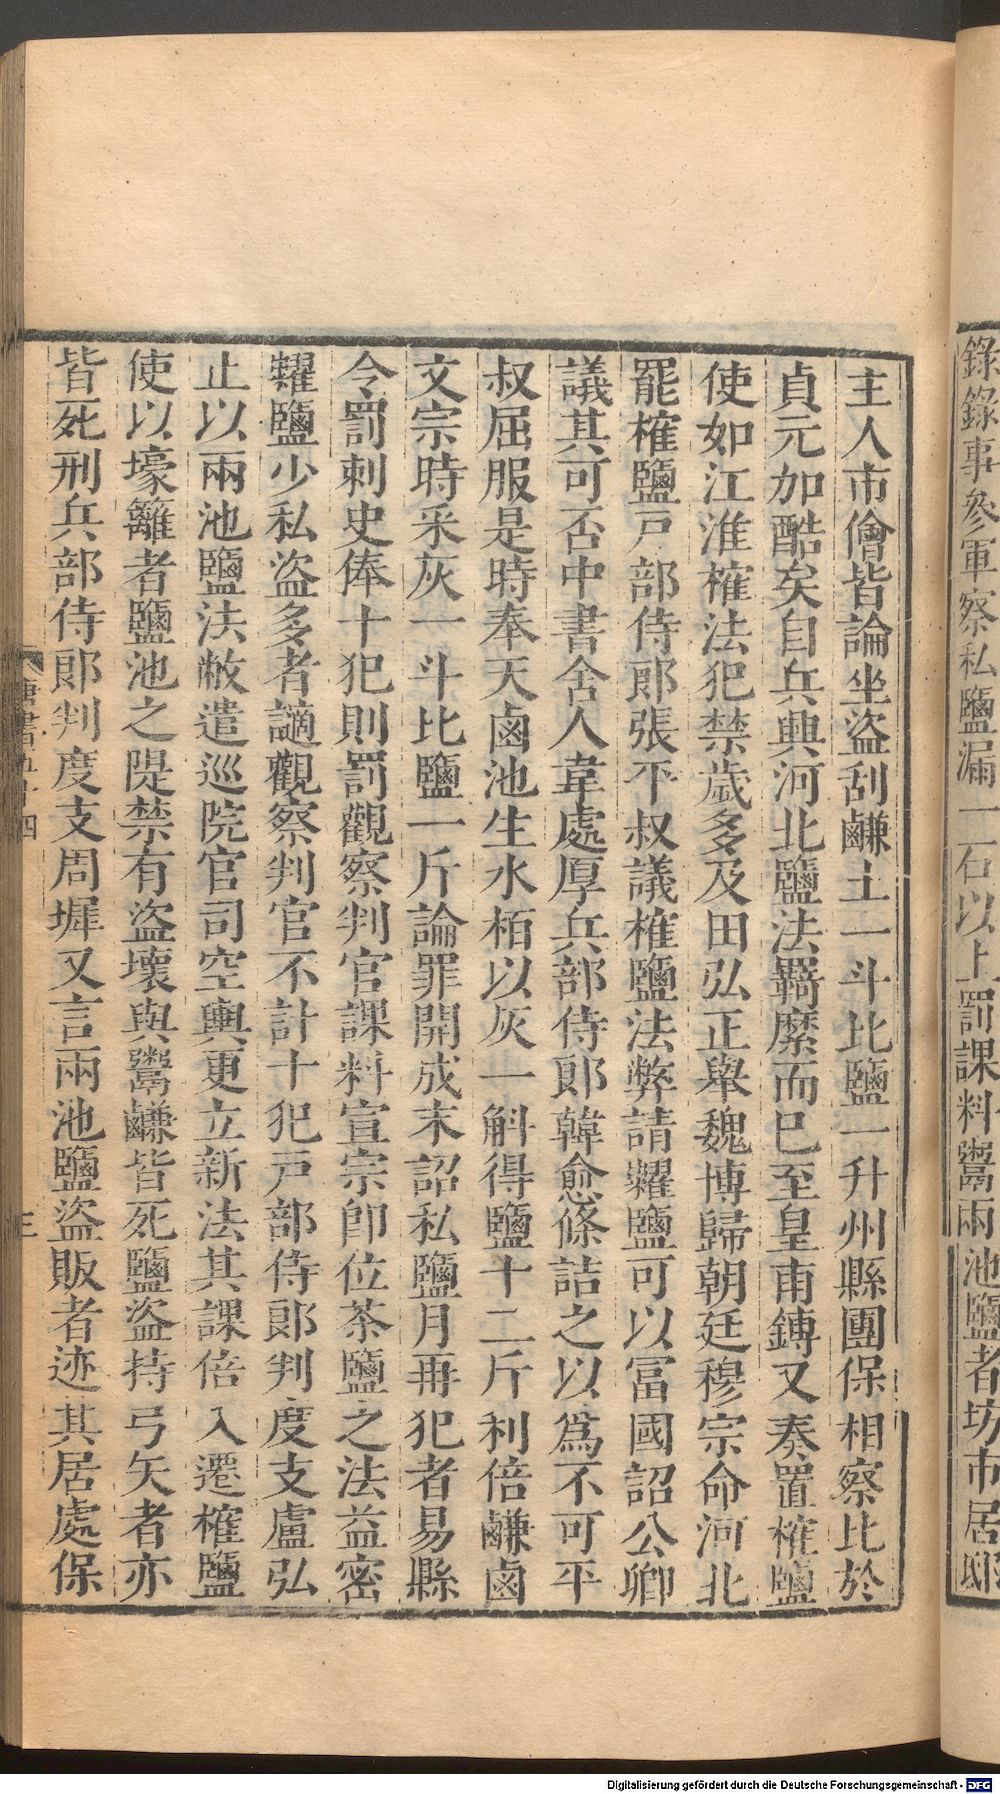 錄錄事參軍察私鹽漏一石以上罰課料鬻兩池鹽者坊市居邸
主人市儈皆論坐盜刮鹻土一斗比鹽一升州縣團保相察比於
貞元加酷矣自兵興河北鹽法羈縻而已至皇甫鎛又奏置榷鹽
使如江淮榷法犯禁歲多及田弘正舉魏博歸朝廷穆宗命河北
罷榷鹽戸部侍郎張平叔議榷鹽法弊請糶鹽可以富國詔公卿
議其可否中書舍人韋處厚兵部侍郎韓愈條詰之以爲不可平
叔屈服是時奉天鹵池生水栢以灰一斛得鹽十二斤利倍鹻鹵
文宗時采灰一斗比鹽一斤論罪開成末詔私鹽月再犯者易縣
令罰刺史俸十犯則罰觀察判官課料宣宗卽位茶鹽之法益密
糶鹽少私盜多者謫觀察判官不計十犯戸部侍郎判度支盧弘
止以兩池鹽法敝遣巡院官司空輿更立新法其課倍入遷榷鹽
使以壕籬者鹽池之隄禁有盜壞與鬻鹻皆死鹽盜持弓矢者亦
皆死刑兵部侍郎判度支周墀又言兩池鹽盜販者迹其居處保
唐書五十四
三
Digitalisierung gefördert durch die Deutsche Forschungsgemeinschaft - DFG